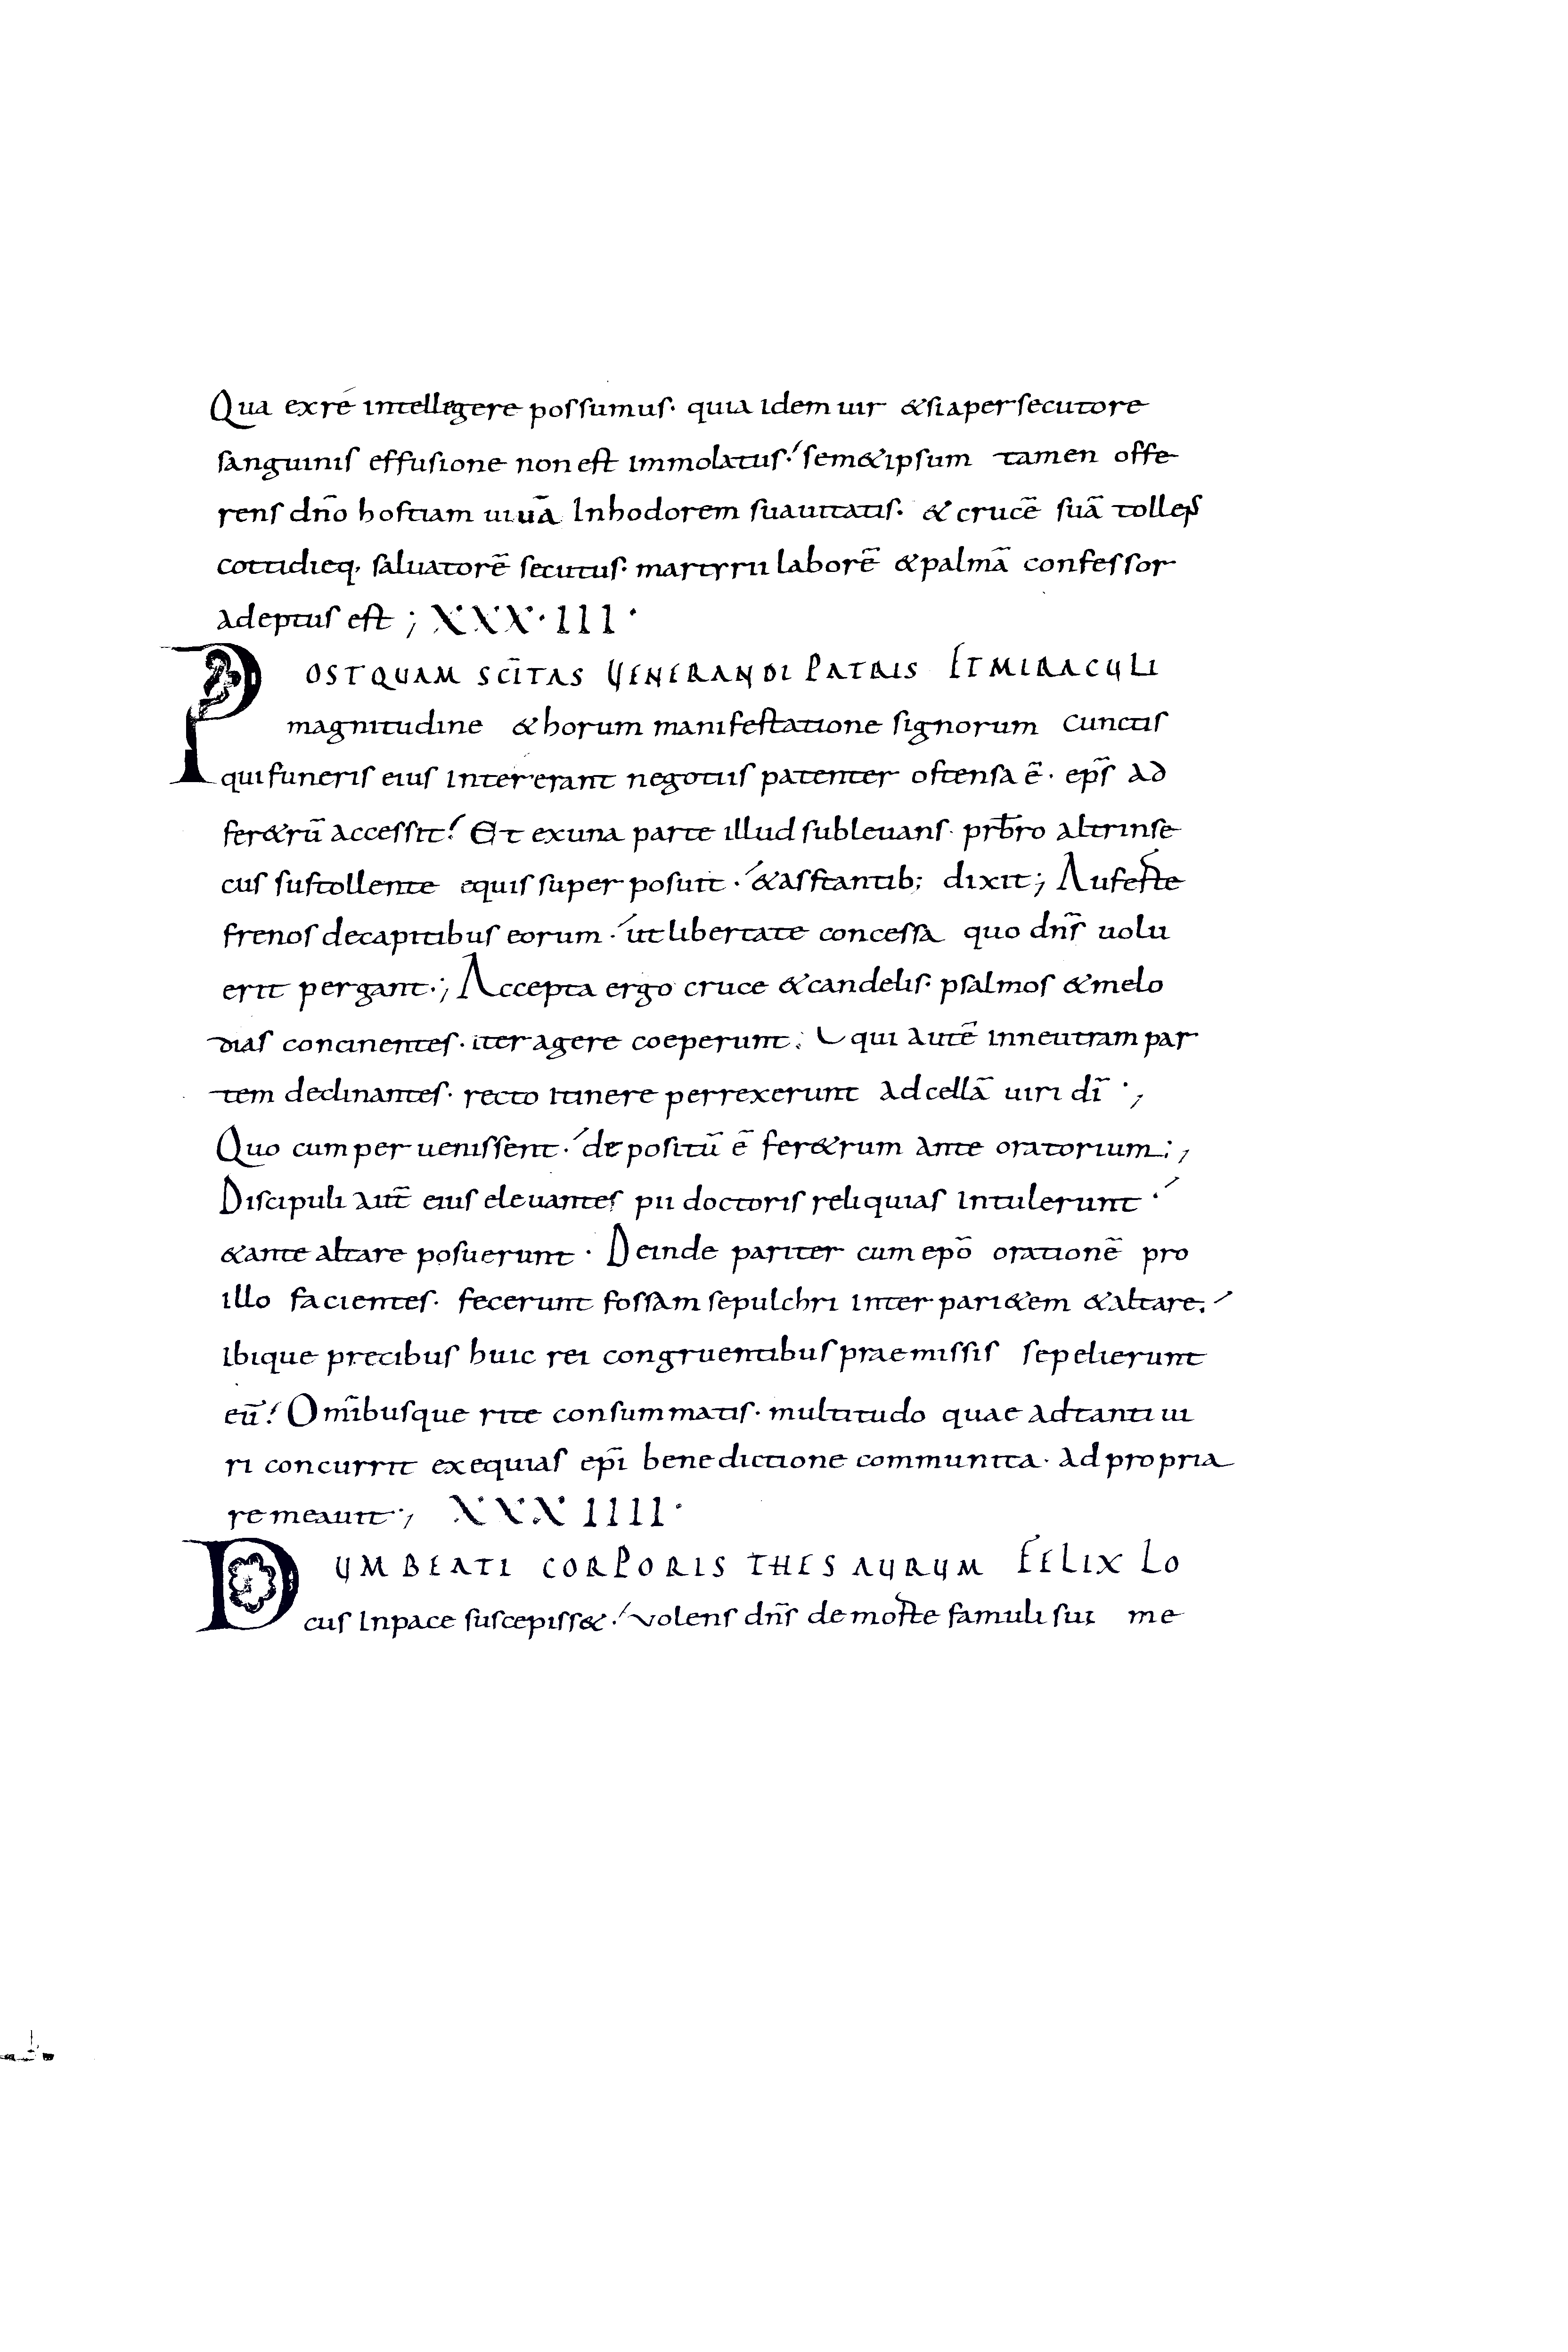 Qua ex re intellegere possumus· quia idem uir &si a persecutore
sanguinis effusione non est immolatus·' sem&ipsum tamen offe
rens dn̄o hostiam uiuā Inhodorem suauitatis· & crucē suā tollens
cottidieq· saluatorē secutus· martyrii laborē & palmā confessor
adeptus est ; XXX·III·
POSTQUAM SCĪTAS UENERANDI PATRIS ET MIRACULI
magnitudine & horum manifestatione signorum cunctis
qui funeris eius intererant negotiis patenter ostensa ē· ep̄s ad
fer&rū accessit! Et ex una parte illud subleuans· prb̄ro altrinse
cus sustollente equis super posuit·' & asstantib; dixit; Auferte
frenos de capitibus eorum·' ut libertate concessa quo dn̄s uolu
erit pergant·; Accepta ergo cruce & candelis· psalmos & melo
dias concinentes· iter agere coeperunt; qui autē in neutram par
tem declinantes· recto itinere perrexerunt ad cellā uiri dī·;
Quo cum peruenissent·' depositū ē fer&rum ante oratorium:;
Discipuli aut̄ eius eleuantes pii doctoris reliquias intulerunt·'
& ante altare posuerunt· Deinde pariter cum ep̄o orationē pro
illo facientes· fecerunt fossam sepulchri inter pari&em & altare.'
ibique precibus huic rei congruentibus praemissis sepelierunt
eū! Om̄ibusque rite consummatis· multitudo quae ad tanti ui
ri concurrit exequias ep̄i benedictione communita· ad propria
remeauit·; XXXIIII·
DUM BEATI CORPORIS THESAURUM FELIX LO
cus In pace suscepiss&·' volens dn̄s de morte famuli sui me